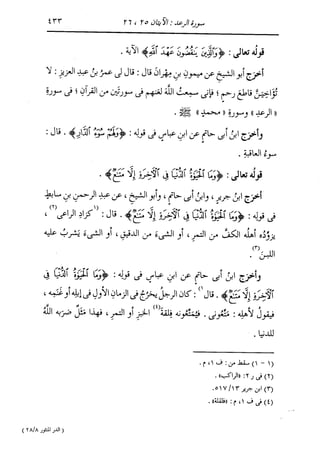 سورة الرعد : الآيتان ٢٥ ، ٢٦
٤٣٣
قوله تعالى : ﴿وَالَّذِينَ يَنقُضُونَ عَهْدَ اللَّهِ﴾ الآية .
أخرج أبو الشيخ عن ميمون بن مِهْران قال : قال لى عمرُ بنُ عبد العزيز : لا
تُؤاخِيَنَّ قاطعَ رحم ؛ فإنى سمِعتُ اللَّهَ لعَنهم فى سورتين من القرآن ؛ فى سورة
«الرعد» وسورة «محمد» ﷺ .
وأخرج ابنُ أبى حاتم عن ابن عباس فى قوله : ﴿وَلَهُمْ سُوءُ الدَّارِ﴾ . قال :
سوءُ العاقبة .
قوله تعالى : ﴿وَمَا الْحَيَوٰةُ الدُّنْيَا فِى الْآخِرَةِ إِلَّا مَتَٰعٌ﴾ .
أخرَج ابنُ جرير ، وابنُ أبى حاتم ، وأبو الشيخ ، عن عبد الرحمن بن سابط
فى قوله : ﴿وَمَا الْحَيَوٰةُ الدُّنْيَا فِى الْآخِرَةِ إِلَّا مَتَٰعٌ﴾ . قال : (١كزاد الراعى(٢) ،
يزوِّدُه أهلُه الكفَّ من التمر ، أو الشىءَ من الدقيق ، أو الشىءَ يشربُ عليه
اللبنَ(٣) .
وأخرج ابنُ أبى حاتم عن ابن عباس فى قوله : ﴿وَمَا الْحَيَوٰةُ الدُّنْيَا فِى
الْآخِرَةِ إِلَّا مَتَٰعٌ﴾ . قال١) : كان الرجلُ يخرُجُ فى الزمان الأول فى إبله أو غنمِه ،
فيقولُ لأهله : مَتِّعُونى . فيُمَتِّعُونه فِلقةَ(٤) الخبز أو التمر ، فهذا مَثَلٌ ضرَبه اللَّهُ
للدنيا .
(١ - ١) سقط من : ف ١ ، م .
(٢) فى ر ٢ : «الراكب» .
(٣) ابن جرير ١٣/ ٥١٧ .
(٤) فى ف ١ ، م : «فلقلة» .
( الدر المنثور ٢٨/٨ )